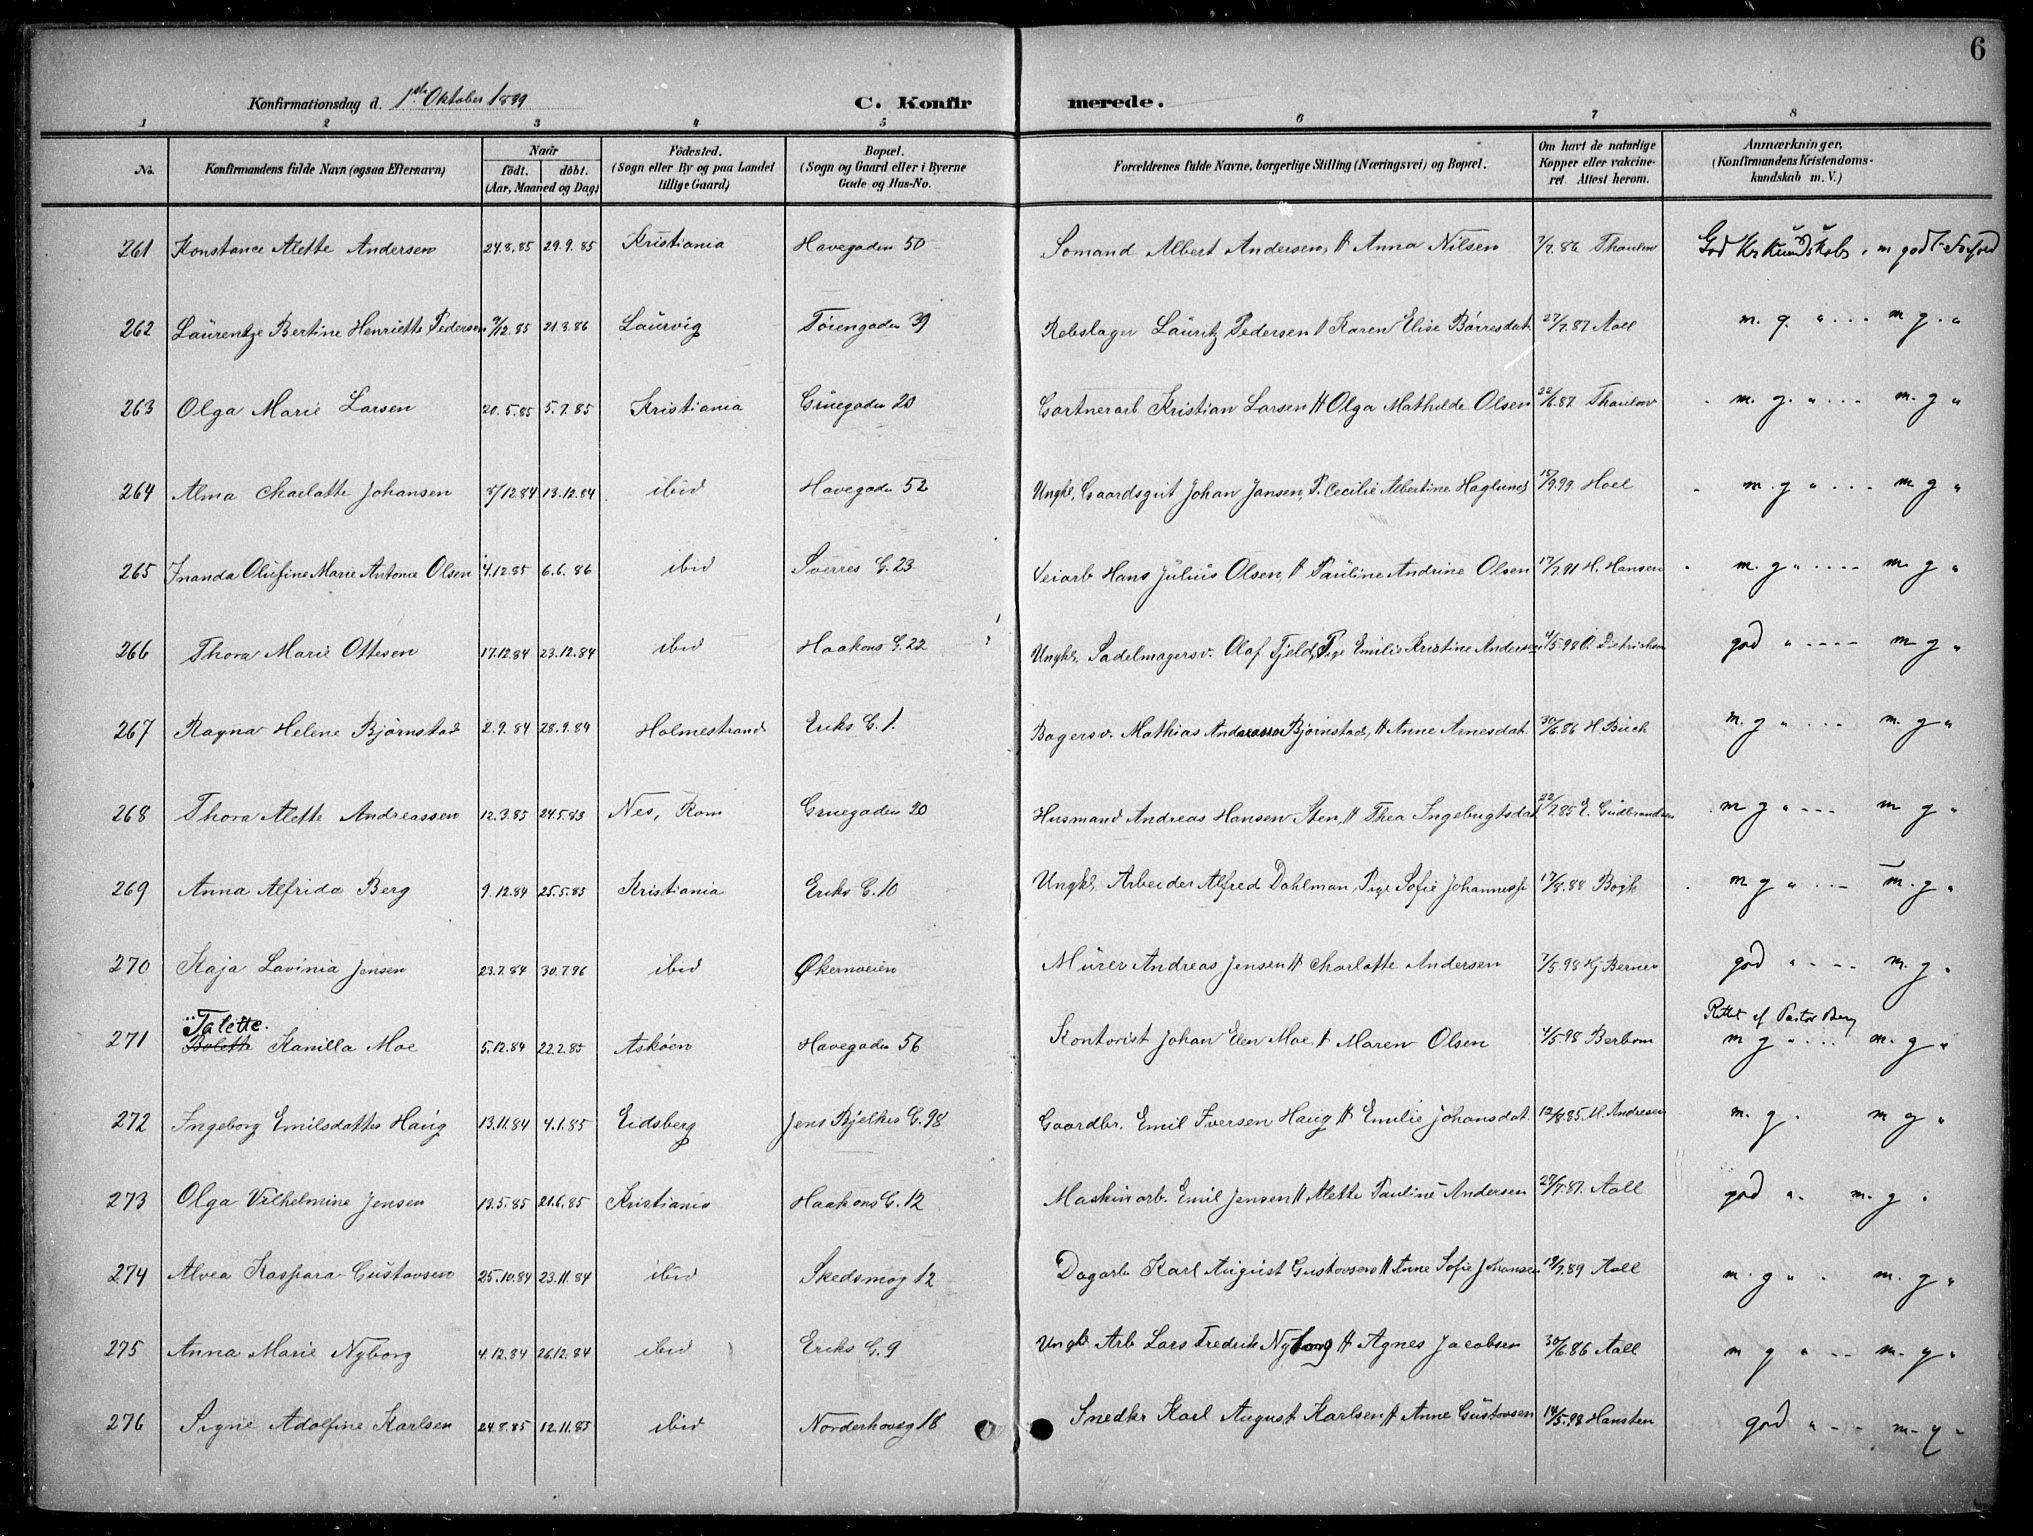 6
Konfirmationsdag d. 1ste Oktober 1899 C. Konfirmerede.
1 2 3 4 5 6 7 8
No. Konfirmandens fulde Navn (ogsaa Efternavn) Naar født. døbt. (Aar, Maaned og Dag) Fødested. (Sogn eller By og paa Landet tillige Gaard) Bopæl. (Sogn og Gaard eller i Byerne Gade og Hus-No.) Forældrenes fulde Navne, borgerlige Stilling (Næringsvei) og Bopæl. Om havt de naturlige Kopper eller vakcineret. Attest herom. Anmærkninger, (Konfirmandens Kristendomskundskab m. V.)
261 Konstance Alette Andersen 24.8.85 29.9.85 Kristiania Havegaden 50 Sømand Albert Andersen, H Anna Nilsen 7/7.86 Thaulow God Kr Kundskab, m. god Forhold
262 Laurentze Bertine Henriette Pedersen 9/12.85 21.3.86 Laurvig Tøiengaden 39 Rebslager Lauritz Pedersen H Karen Elise Børresdat. 27/7.87 Aall m. g. " --- m g. "
263 Olga Marie Larsen 20.5.85 5.7.85 Kristiania Gruegaden 20 Gartnerarb Kristian Larsen H Olga Mathilde Olsen 22/6.87 Thaulow m. g. " --- m. g "
264 Alma Charlotte Johansen 8/12 84 13.12.84 ibid Havegaden 52 Ungkl, Gaardsgut Johan Jansen, P. Cecilie Albertine Haglund 15/9.99. Hoel m. g " --- m g "
265 Inanda Olufine Marie Antonie Olsen 4.12.85 6.6.86 ibid Sverres G. 23 Veiarb Hans Julius Olsen, H Pauline Andrine Olsen 17/7.91 H. Hansen m. g " ---- m. g "
266 Thora Marie Ottesen 17.12.84 23.12.84 ibid Haakons G. 22 Ungkl, Sadelmagersv. Olaf Fjeld, Pige Emilie Kristine Andersen 4/5.98 O. Dietrichson god " ---- m g "
267 Ragna Helene Bjørnstad 2.9.84 28.9.84 Holmestrand Eriks G. 1. Bagersv. Mathias Andreassen Bjørnstad, H Anne Arnesdat. 30/6.86 H. Buch m. g " --- m. g "
268 Thora Alette Andreassen 12.3.85 24.5.83 Nes, Rom Gruegaden 20 Husmand Andreas Hansen Sten, H Thea Ingebrigtsdat 22/7.85 E. Gudbrandsen m g " --- m g "
269 Anna Alfrida Berg 9.12.84 25.5.85 Kristiania Eriks G. 10 Ungkl, Arbeider Alfred Dahlman, Pige Sofie Johannesd 17/8.88 Bøgh m g " --- m. g "
270 Kaja Lavinia Jensen 23.7.84 30.7.96 ibid Økernveien Murer Andreas Jensen H Charlotte Andersen 7/5.98 Hj Berner god " --- m. g "
271 Talette. Bolette Kamilla Moe 5.12.84 22.2.85 Askøen Havegaden 56 Kontorist Johan Elen Moe, H Maren Olsen 4/5.98 Berbom Rettet af Pastor Berg m g " --- m. g "
272 Ingeborg Emilsdatter Haug 13.11.84 4.1.85 Eidsberg Jens Bjelkes G. 98 Gaardbr. Emil Iversen Haug H Emilie Johansdat. 12/8.85 M. Andresen m. g. m g "
273 Olga Vilhelmine Jensen 13.5.85 21.6.85 Kristiania Haakons G. 12 Maskinarb. Emil Jensen H Alette Pauline Andersen 27/7.87. Aall god " m. g "
274 Alvea Kaspara Gustavsen 25.10.84 23.11.84 ibid Skedsmog 12 Dagarb Karl August Gustavsen H Anne Sofie Johansen 18/7.89 Aall m. g " m. g "
275 Anna Marie Nyborg 4.12.84 26.12.84 ibid Eriks G. 9 Ungkl Arb Lars Fredrik Nyborg H Agnes Jacobsen 30/6.86 Aall m g " --- m. g "
276 Signe Adolfine Karlsen 24.8.85 12.11.85 ibid Norderhovsg 18 Snedkr Karl August Karlsen H Anne Gustavsen 14/5.98 Hansten god " --- m. g "